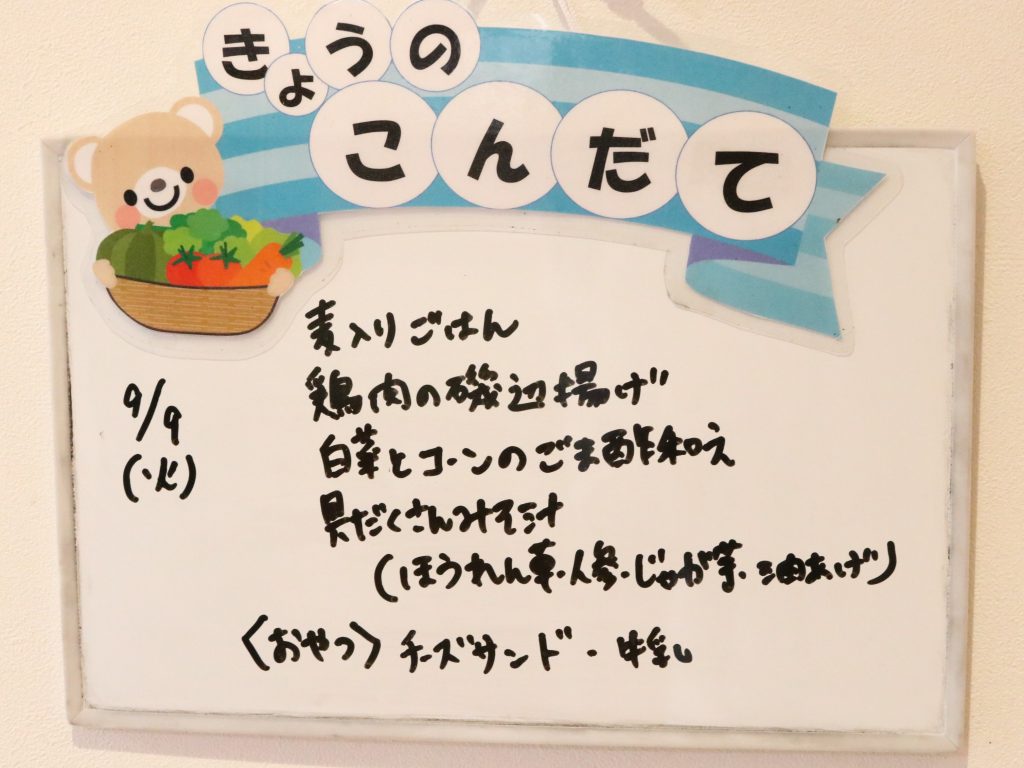 きょうの
こんだて
9/9
(火)
麦入りごはん
鶏肉の磯辺揚げ
白菜とコーンのごま酢和え
具だくさんみそ汁
(ほうれん草・人参・じゃが芋・油あげ)
〈おやつ〉チーズサンド・牛乳